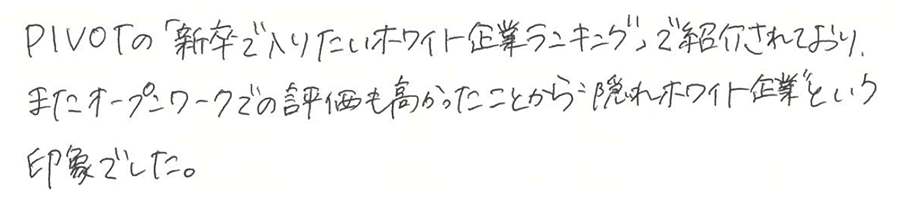 PIVOTの「新卒で入りたいホワイト企業ランキング」で紹介されており、
またオープンワークでの評価も高かったことから“隠れホワイト企業”という
印象でした。